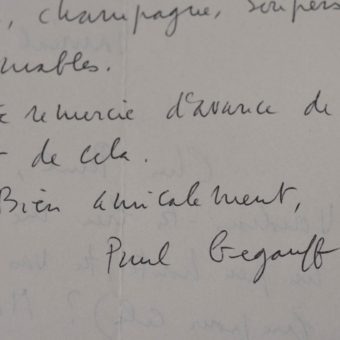 , champagne, soupers
mables.
te remercie d'avance de
de cela.
Bien amicalement,
Paul Gegauff